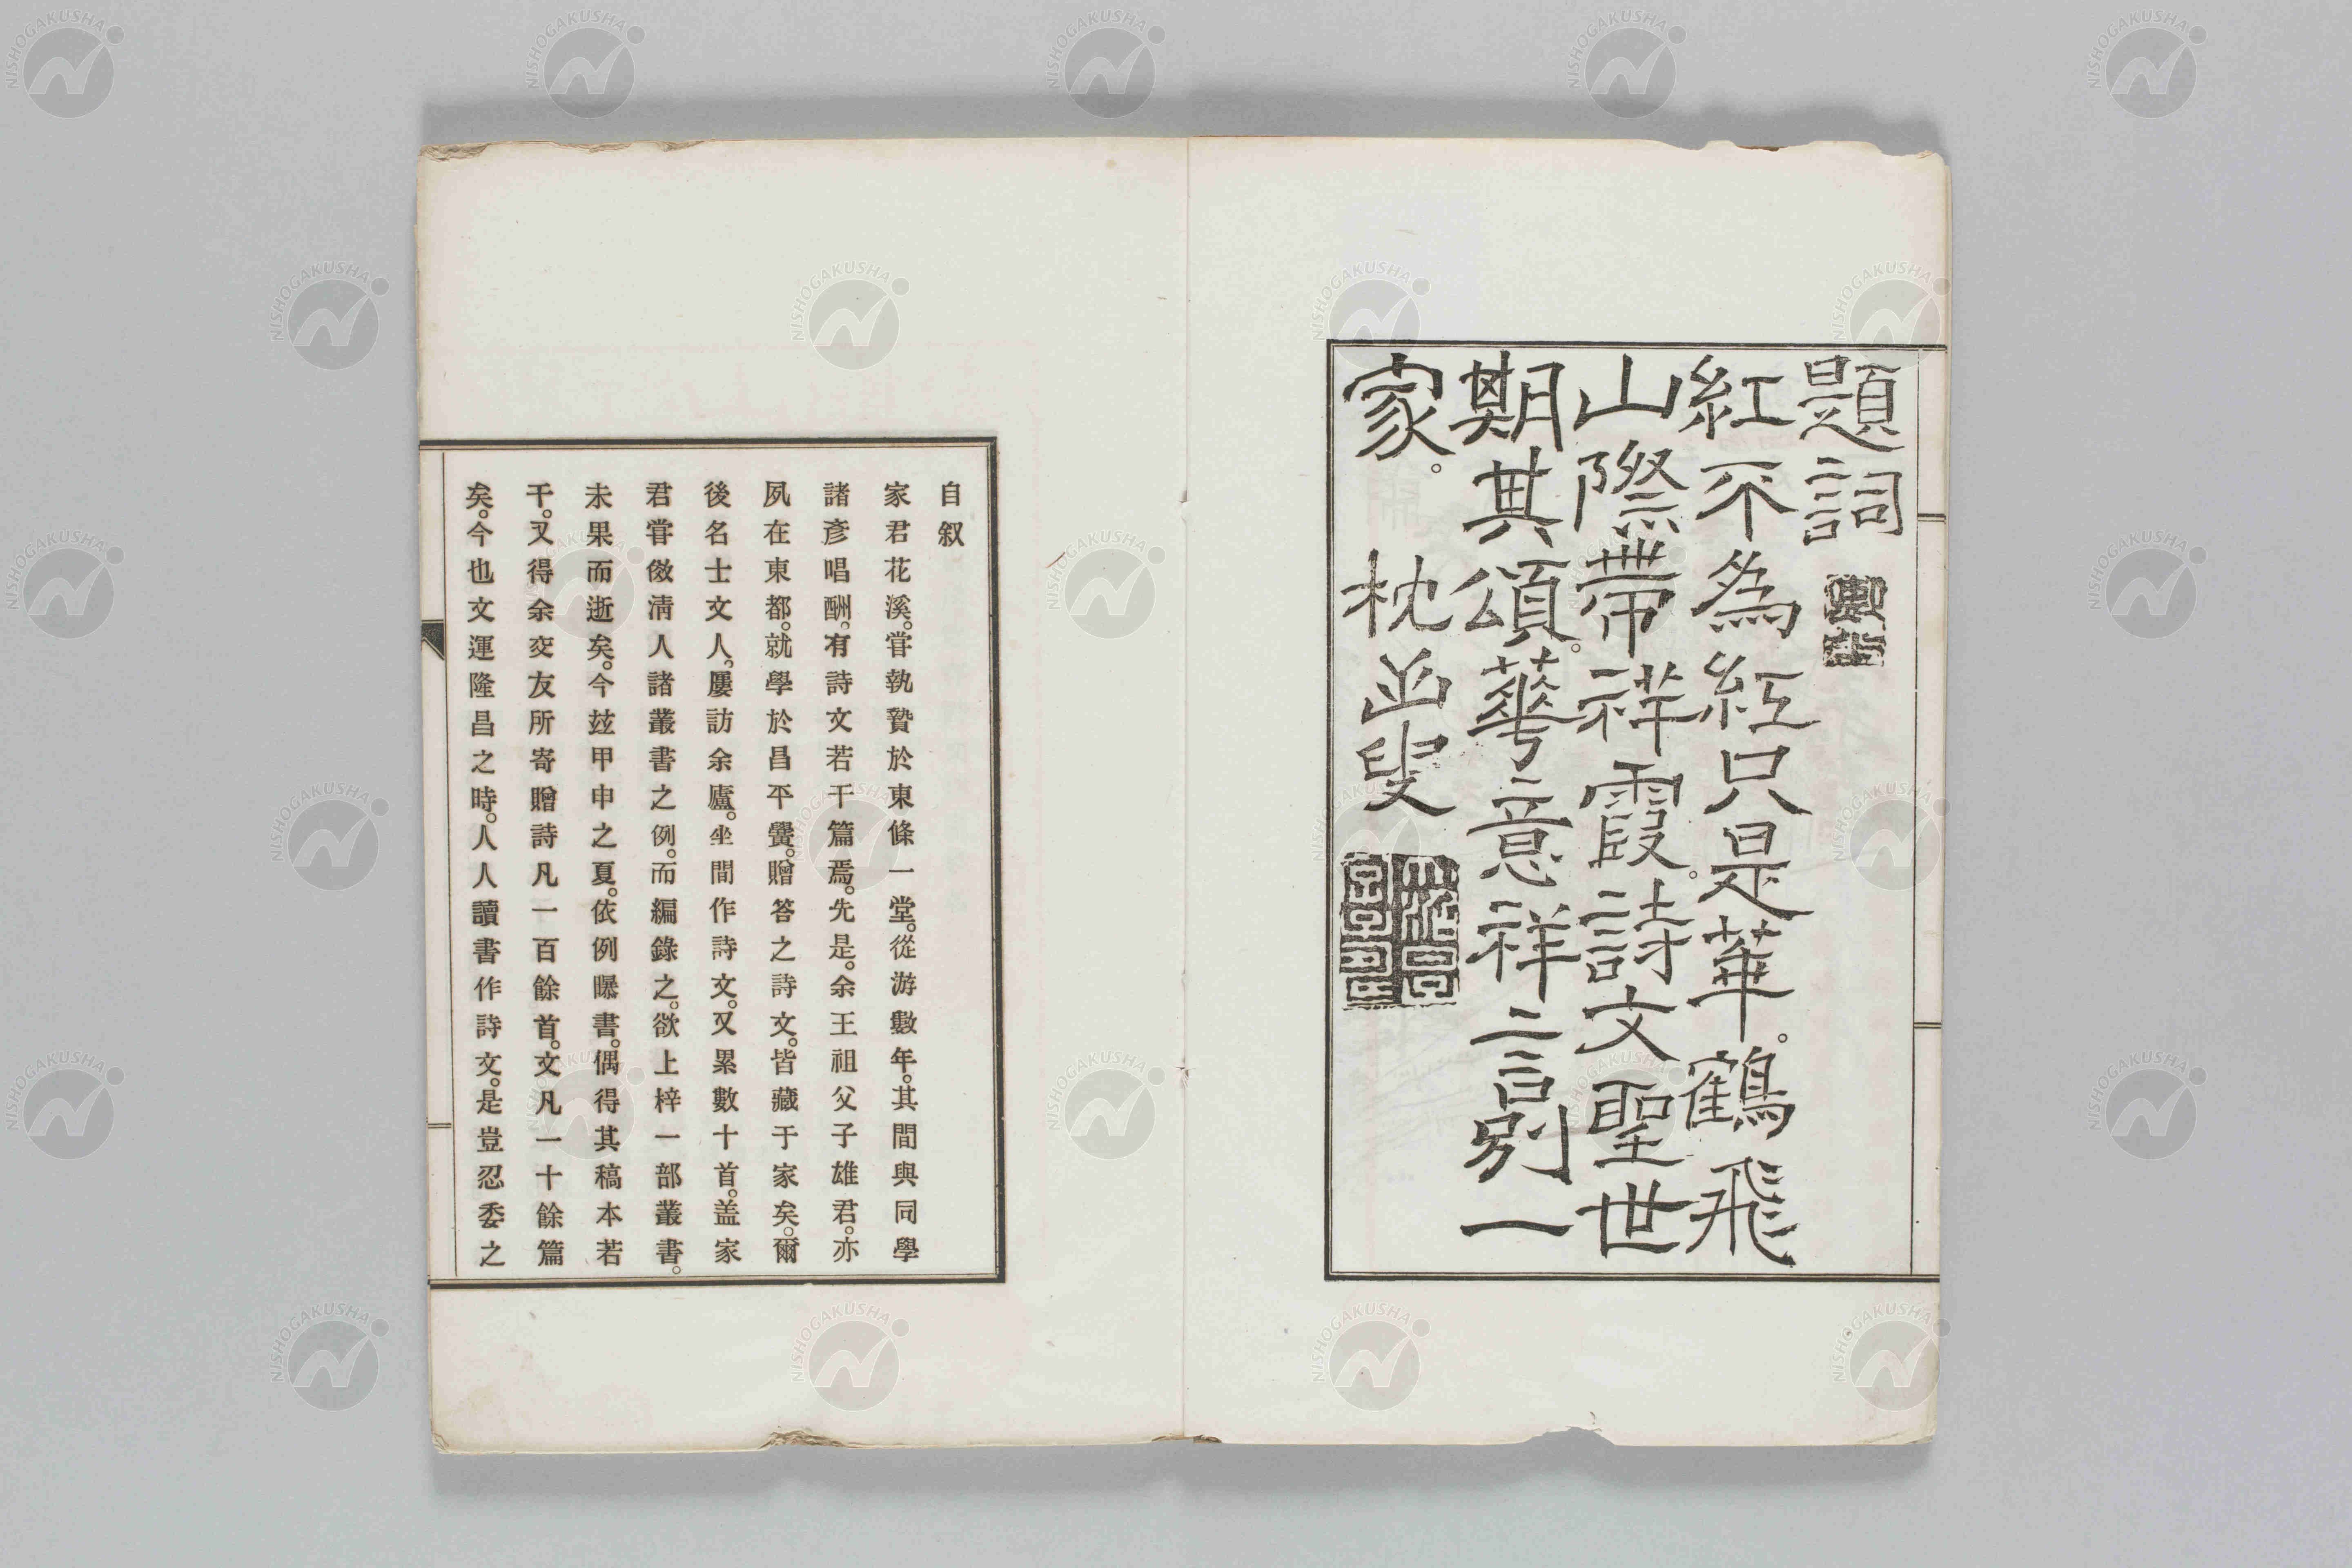 題詞
紅不為紅只是華。鶴飛
山際帶祥霞。詩文聖世
期其頌。華意祥言別一
家。
枕山叟
自叙
家君花溪。甞執贄於東條一堂。從游數年。其間與同學
諸彥唱酬。有詩文若干篇焉。先是。余王祖父子雄君。亦
夙在東都。就學於昌平黌。贈答之詩文。皆藏于家矣。爾
後名士文人。屢訪余廬。坐間作詩文。又累數十首。盖家
君甞傚淸人諸叢書之例。而編錄之。欲上梓一部叢書。
未果而逝矣。今玆甲申之夏。依例曝書。偶得其稿本若
干。又得余交友所寄贈詩凡一百餘首。文凡一十餘篇
矣。今也文運隆昌之時。人人讀書作詩文。是豈忍委之
NISHOGAKUSHA